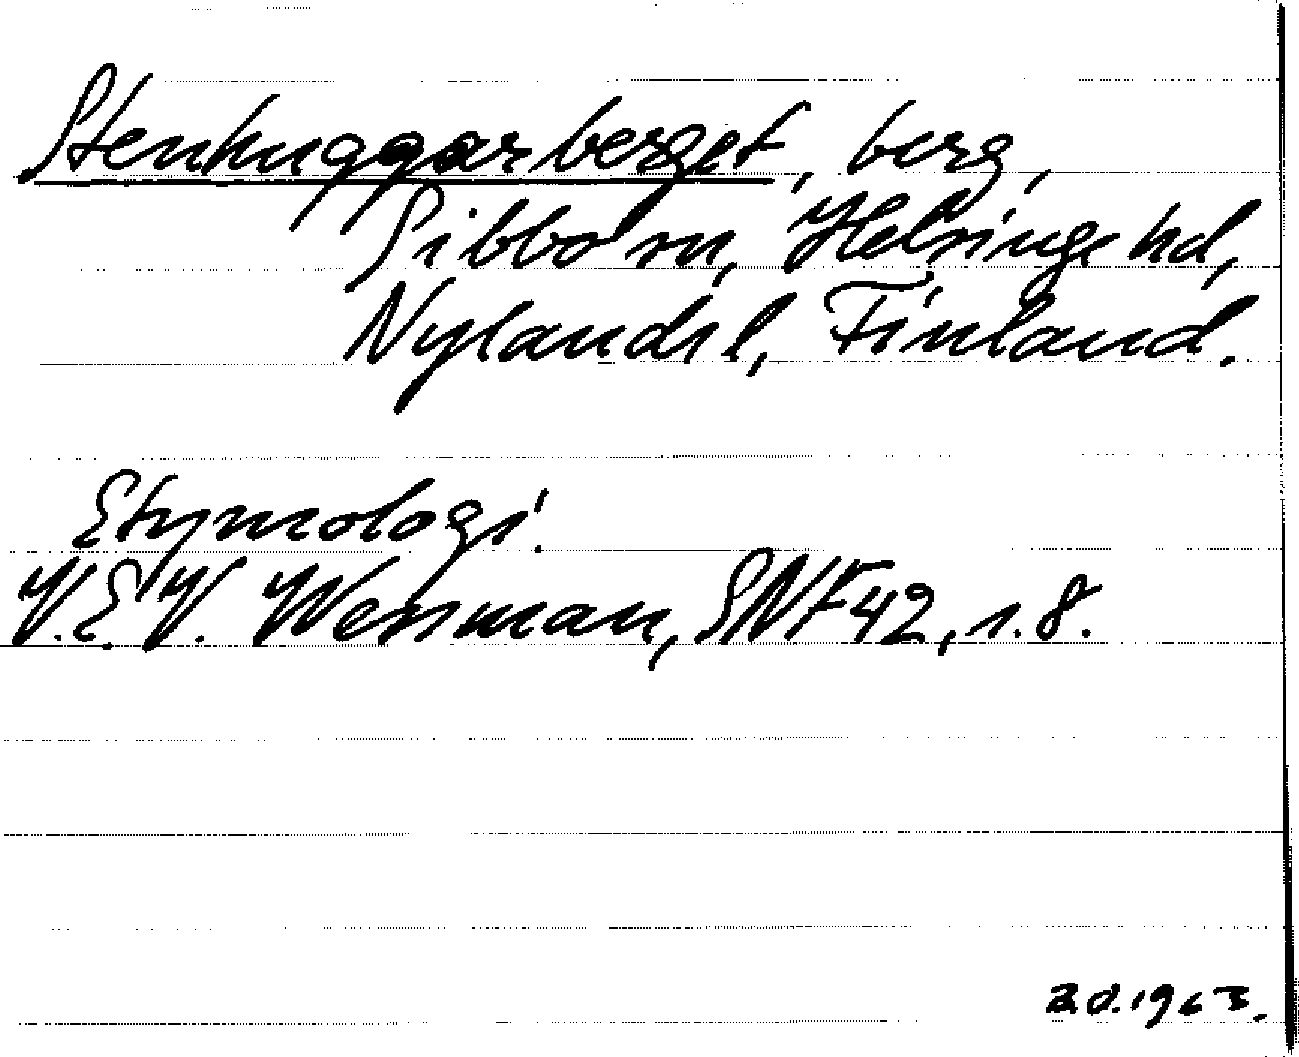 Stenhuggarberget, berg,
Sibbo sn, Helsinge hd,
Nylands l, Finland.
Etymologi.
V.E.V. Wessman, SNF 42, s. 8.
2.d.1963.